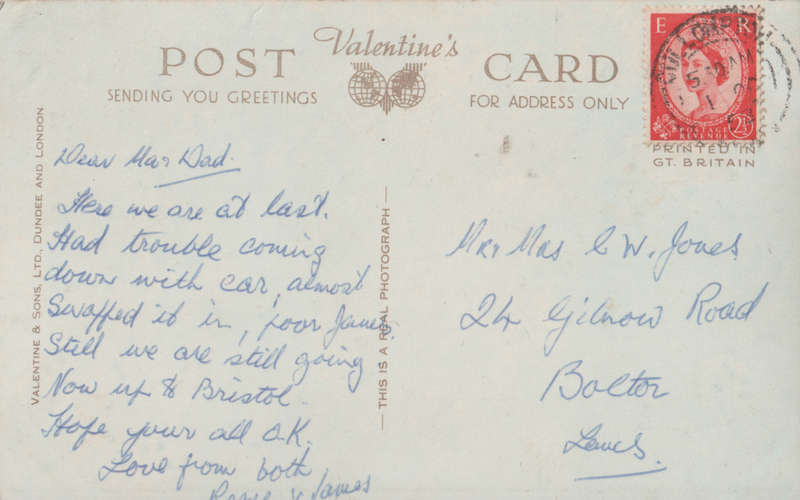 Valentine's
POST CARD
SENDING YOU GREETINGS
FOR ADDRESS ONLY
E R
POSTAGE
REVENUE
2½
PRINTED IN
GT. BRITAIN
VALENTINE & SONS, LTD., DUNDEE AND LONDON
THIS IS A REAL PHOTOGRAPH
Dear Ma & Dad.
Here we are at last.
Had trouble coming
down with car, almost
Swapped it in, poor James.
Still we are still going
Now up to Bristol.
Hope your all O.K.
Love from both
& James
Mr & Mrs C W. Jones
24 Gilnow Road
Bolton
Lancs.